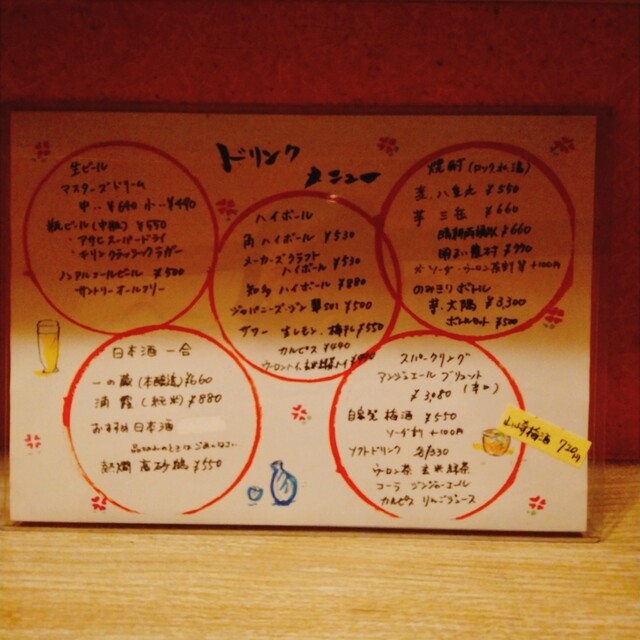 ドリンク
メニュー
生ビール
マスターズドリーム
中‥¥640 小‥¥490
瓶ビール(中瓶) ¥550
・アサヒスーパードライ
・キリンクラシックラガー
ノンアルコールビール ¥500
サントリーオールフリー
ハイボール
角ハイボール ¥530
メーカーズクラフト
ハイボール ¥530
知多 ハイボール ¥880
ジャパニーズ・ジン 翠501 ¥500
サワー 生レモン、梅干し ¥550
カルピス ¥490
ウーロンハイ、玄米緑茶ハイ
焼酎(ロックorお湯)
麦、八重丸 ¥550
芋 三岳 ¥660
¥660
明るい農村 ¥990
※ソーダ・ウーロン茶割等+100円
のみきりボトル
芋、大隅 ¥3,300
ボトルセット ¥500
日本酒 一合
一の蔵(本醸造) ¥660
浦霞(純米) ¥880
おすすめ日本酒
品切れのときはごめんなさい
熱燗 高砂 ¥550
スパークリング
アンジュエール ブリュット
(辛口)
¥3,080
白加賀 梅酒 ¥550
ソーダ割 +100円
ソフトドリンク 各¥330
ウーロン茶 玄米緑茶
コーラ ジンジャーエール
カルピス りんごジュース
梅酒 720円